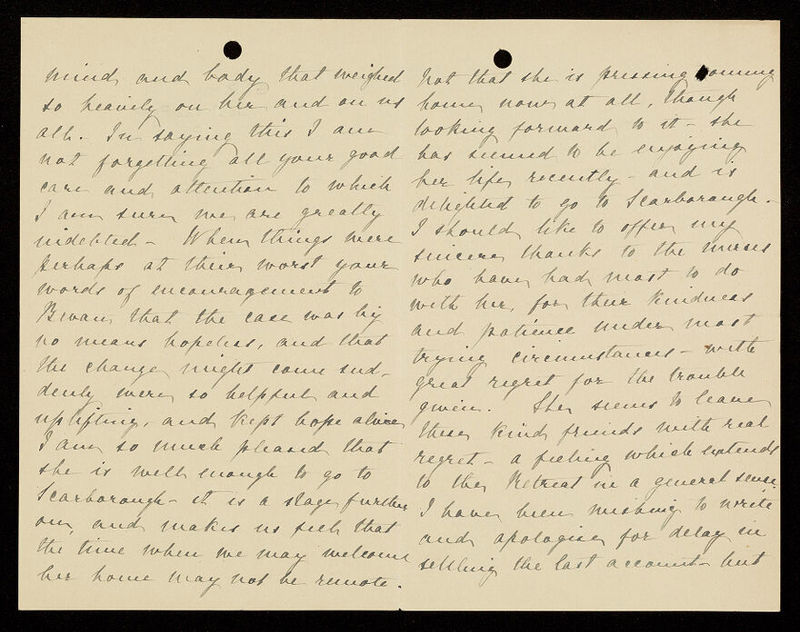 mind and body that weighed
so heavily on her and on us
all. In saying this I am
not forgetting all your good
care and attention to which
I am sure we are greatly
indebted - When things were
perhaps at their worst your
words of encouragement to
that the case was by
no means hopeless, and that
the change might come sud-
denly were so helpful and
uplifting, and kept hope alive
I am so much pleased that
she is well enough to go to
Scarborough - it is a stage further
on, and makes us feel that
the time when we may welcome
her home may not be remote.
Not that she is pressing coming
home now at all, though
looking forward to it - she
has seemed to be enjoying
her life recently - and is
delighted to go to Scarborough -
I should like to offer my
sincere thanks to the nurses
who have had most to do
with her, for their kindness
and patience under most
trying circumstances - with
great regret for the trouble
given. She seems to leave
these kind friends with real
regret - a feeling which extends
to the Retreat in a general sense.
I have been wishing to write
and apologise for delay in
settling the last account - but